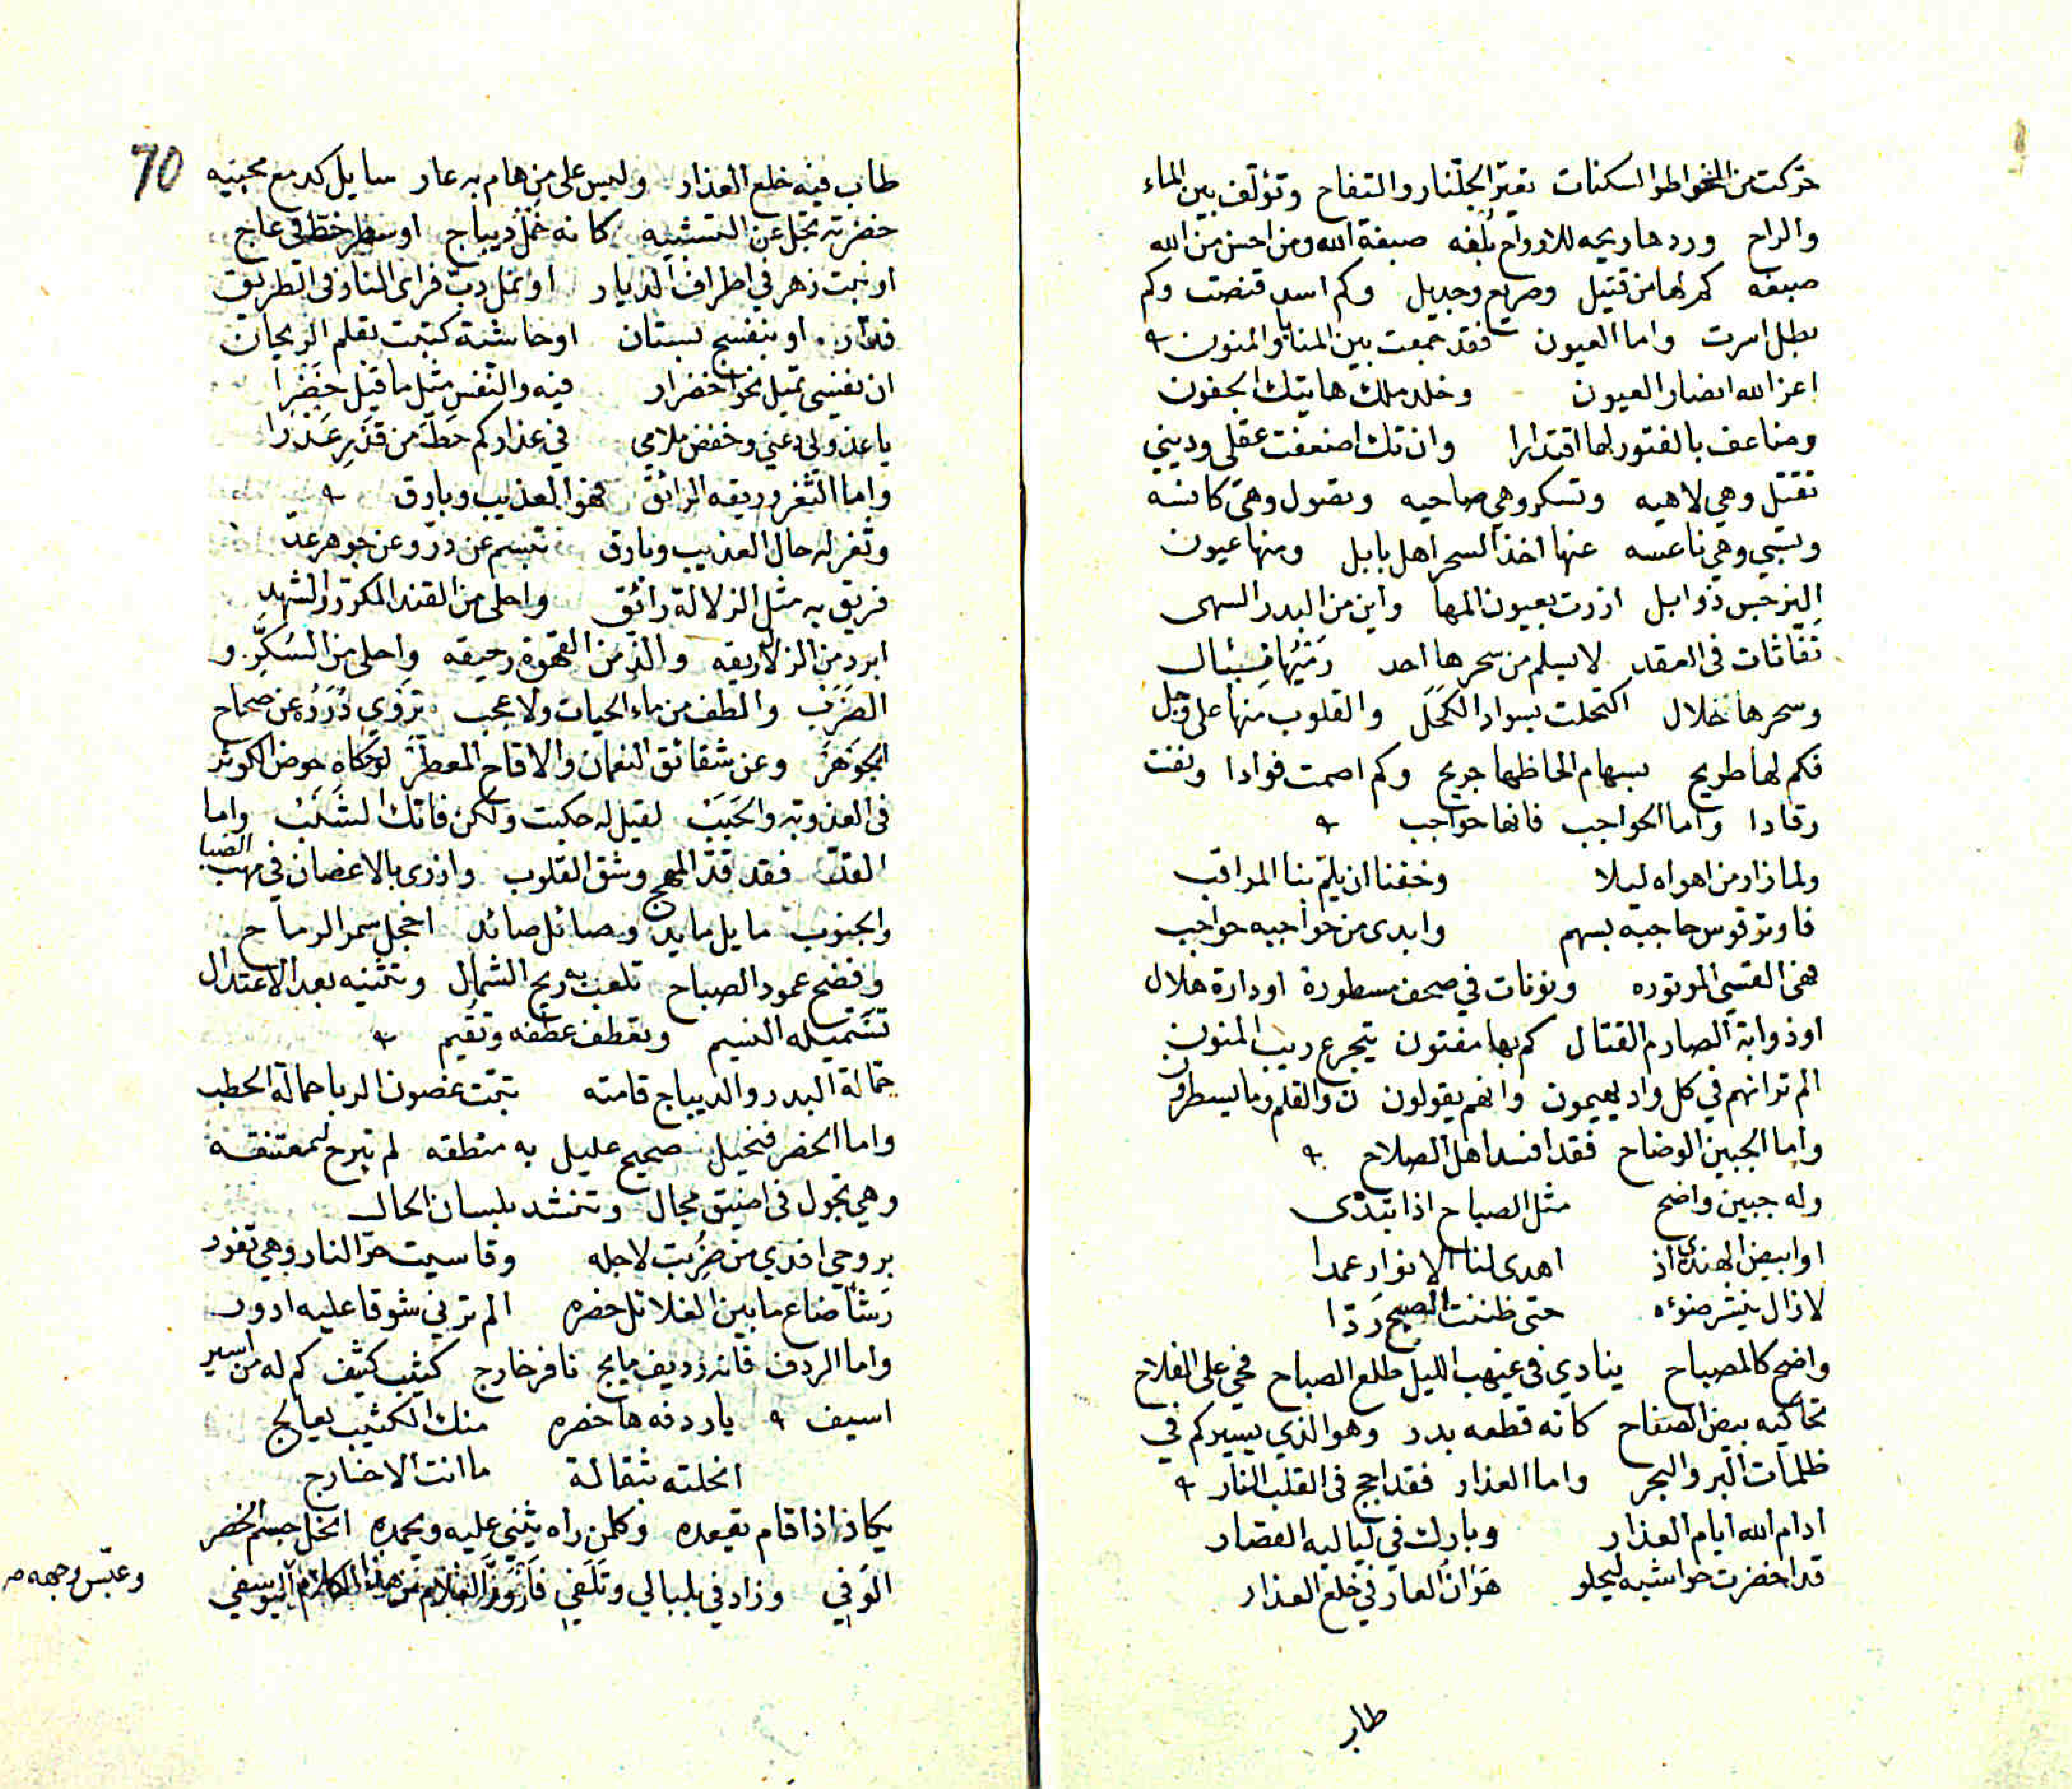 حركت من الخواطر السكنات تعير الجلنار والتفاح وتؤلف بين الماء
والراح وردها ريحه للارواح بُلغه صبغة الله ومن احسن من الله
صبغه كم لها من قتيل وصريع وجديل وكم اسد قنصت وكم
بطل اسرت واما العيون فقد جمعت بين المنايا والمنون
اعز الله انصار العيون وخلد ملك هاتيك الجفون
وضاعف بالفتور لها اقتدارا وان تك اضعفت عقلي وديني
تقتل وهي لاهيه وتسكر وهي صاحيه وتصول وهي كانسه
وتسبي وهي ناعسه عنها اخذ السحر اهل بابل ومنها عيون
النرجس ذوابل ازرت بعيون المها واين من البدر السهى
نَفّاثات في العقد لا يسلم من سحرها احد رَمْيُها نبال
وسحرها حلال اكتحلت بسواد الكَحَل والقلوب منها على وجل
فكم لها طريح بسهام الحاظها جريح وكم اصمت فوادا ونفت
رقادا واما الحواجب فانها حواجب
ولما زار من اهواه ليلا وخفنا ان يلمّ بنا المراقب
فاوتر قوس حاجبه بسهم وابدى من حواجبه حواجب
فهي القسي الموتوره ونونات في صحف مسطورة او دارة هلال
او ذوابة الصارم القتال كم بها مفتون يتجرع ريب المنون
الم تر انهم في كل واد يهيمون وانهم يقولون ن والقلم وما يسطرون
واما الجبين الوضاح فقد افسد اهل الصلاح
وله جبين واضح مثل الصباح اذا تبدّى
او ابيض الهندي اذ اهدى لنا الانوار عمدا
لا زال ينشر ضوئه حتى ظننت الصبح رَدّا
واضح كالمصباح ينادي في غيهب الليل طلع الصباح فحي على الفلاح
تحاكيه بيض الصفاح كانه قطعه بدر وهو الذي يسيركم في
ظلمات البر والبحر واما العذار فقد اجج في القلب النار
ادام الله ايام العذار وبارك في لياليه القصار
قد اخضرت حواشيه ليحلو هَوَانُ العار في خلع العذار
طاب
70
طاب فيه خلع العذار وليس على من هام به عار سايل كدمع محبيه
خضرته تجل عن التشبيه كانه خَمْل ديباج او سطر خط في عاج
او نبت زهر في اطراف الديار او نمل دبّ فراى النار في الطريق
فدار او بنفسج بستان او حاشية كتبت بقلم الريحان
ان نفسي تميل نحو اخضرار فيه والنفس مثل ما قيل خَضْرا
يا عذولي دعني وخفض ملامي في عذاركم حَطّ من قَدْرِ عَذْرَا
واما الثغر وريقه الرائق فهو العذيب وبارق
وثغر له حال العذيب وبارق تبسم عن درّ وعن جوهر عدّ
فريق به مثل الزلالة رائق واحلى من القند المكرر والشهد
ابرد من الزلال ريقه والذ من القهوة رحيقه واحلى من السُكَّر و
الضَرَب والطف من ماء الحيات ولا عجب تروي دُرَرُه عن صحاح
الجَوهَر وعن شقائق النعمان والاقاح المعطر لو حكاه حوض الكوثر
في العذوبة والحَبَبْ لقيل له حكيت ولكن فاتك الشَنَبُ واما
القد فقد قدّ المهج وشق القلوب وازرى بالاغصان في مهب الصبا
والجنوب مايل مايد وصائل صائد اخجل سمر الرماح
وفضح عمود الصباح تلعب به ريح الشمال وتثنيه بعد الاعتدال
تستميله النسيم وتعطف عطفه وتقيم
حمالة البدر والديباج قامته تبّت غصون الربا حمالة الحطب
واما الخصر فنحيل صحيح عليل به منطقه لم تبرح معتنقه
وهي تجول في اضيق مجال وتنشد بلسان الحال
بروحي افدي من ضُرِبت لاجله وقاسيت حرّ النار وهي تفور
رَشأ ضاع ما بين الغلائل خصره الم ترني شوقا عليه ادور
واما الردف فانه رديف مايج نافر خارج كثيب كثيف كم له من اسير
اسيف يا ردفه ها خصره منك الكئيب يعالج
انحلته بثقالة ما انت الا خارج
يكاد اذا قام يقعده وكلمن راه يثني عليه ويحمده انحل جسم الخصر
الوَفي وزاد في بلبالي وتَلَفي فَازْوَرَّ الغلام من هذا الكلام اليوسفي
وعبّس وجهه